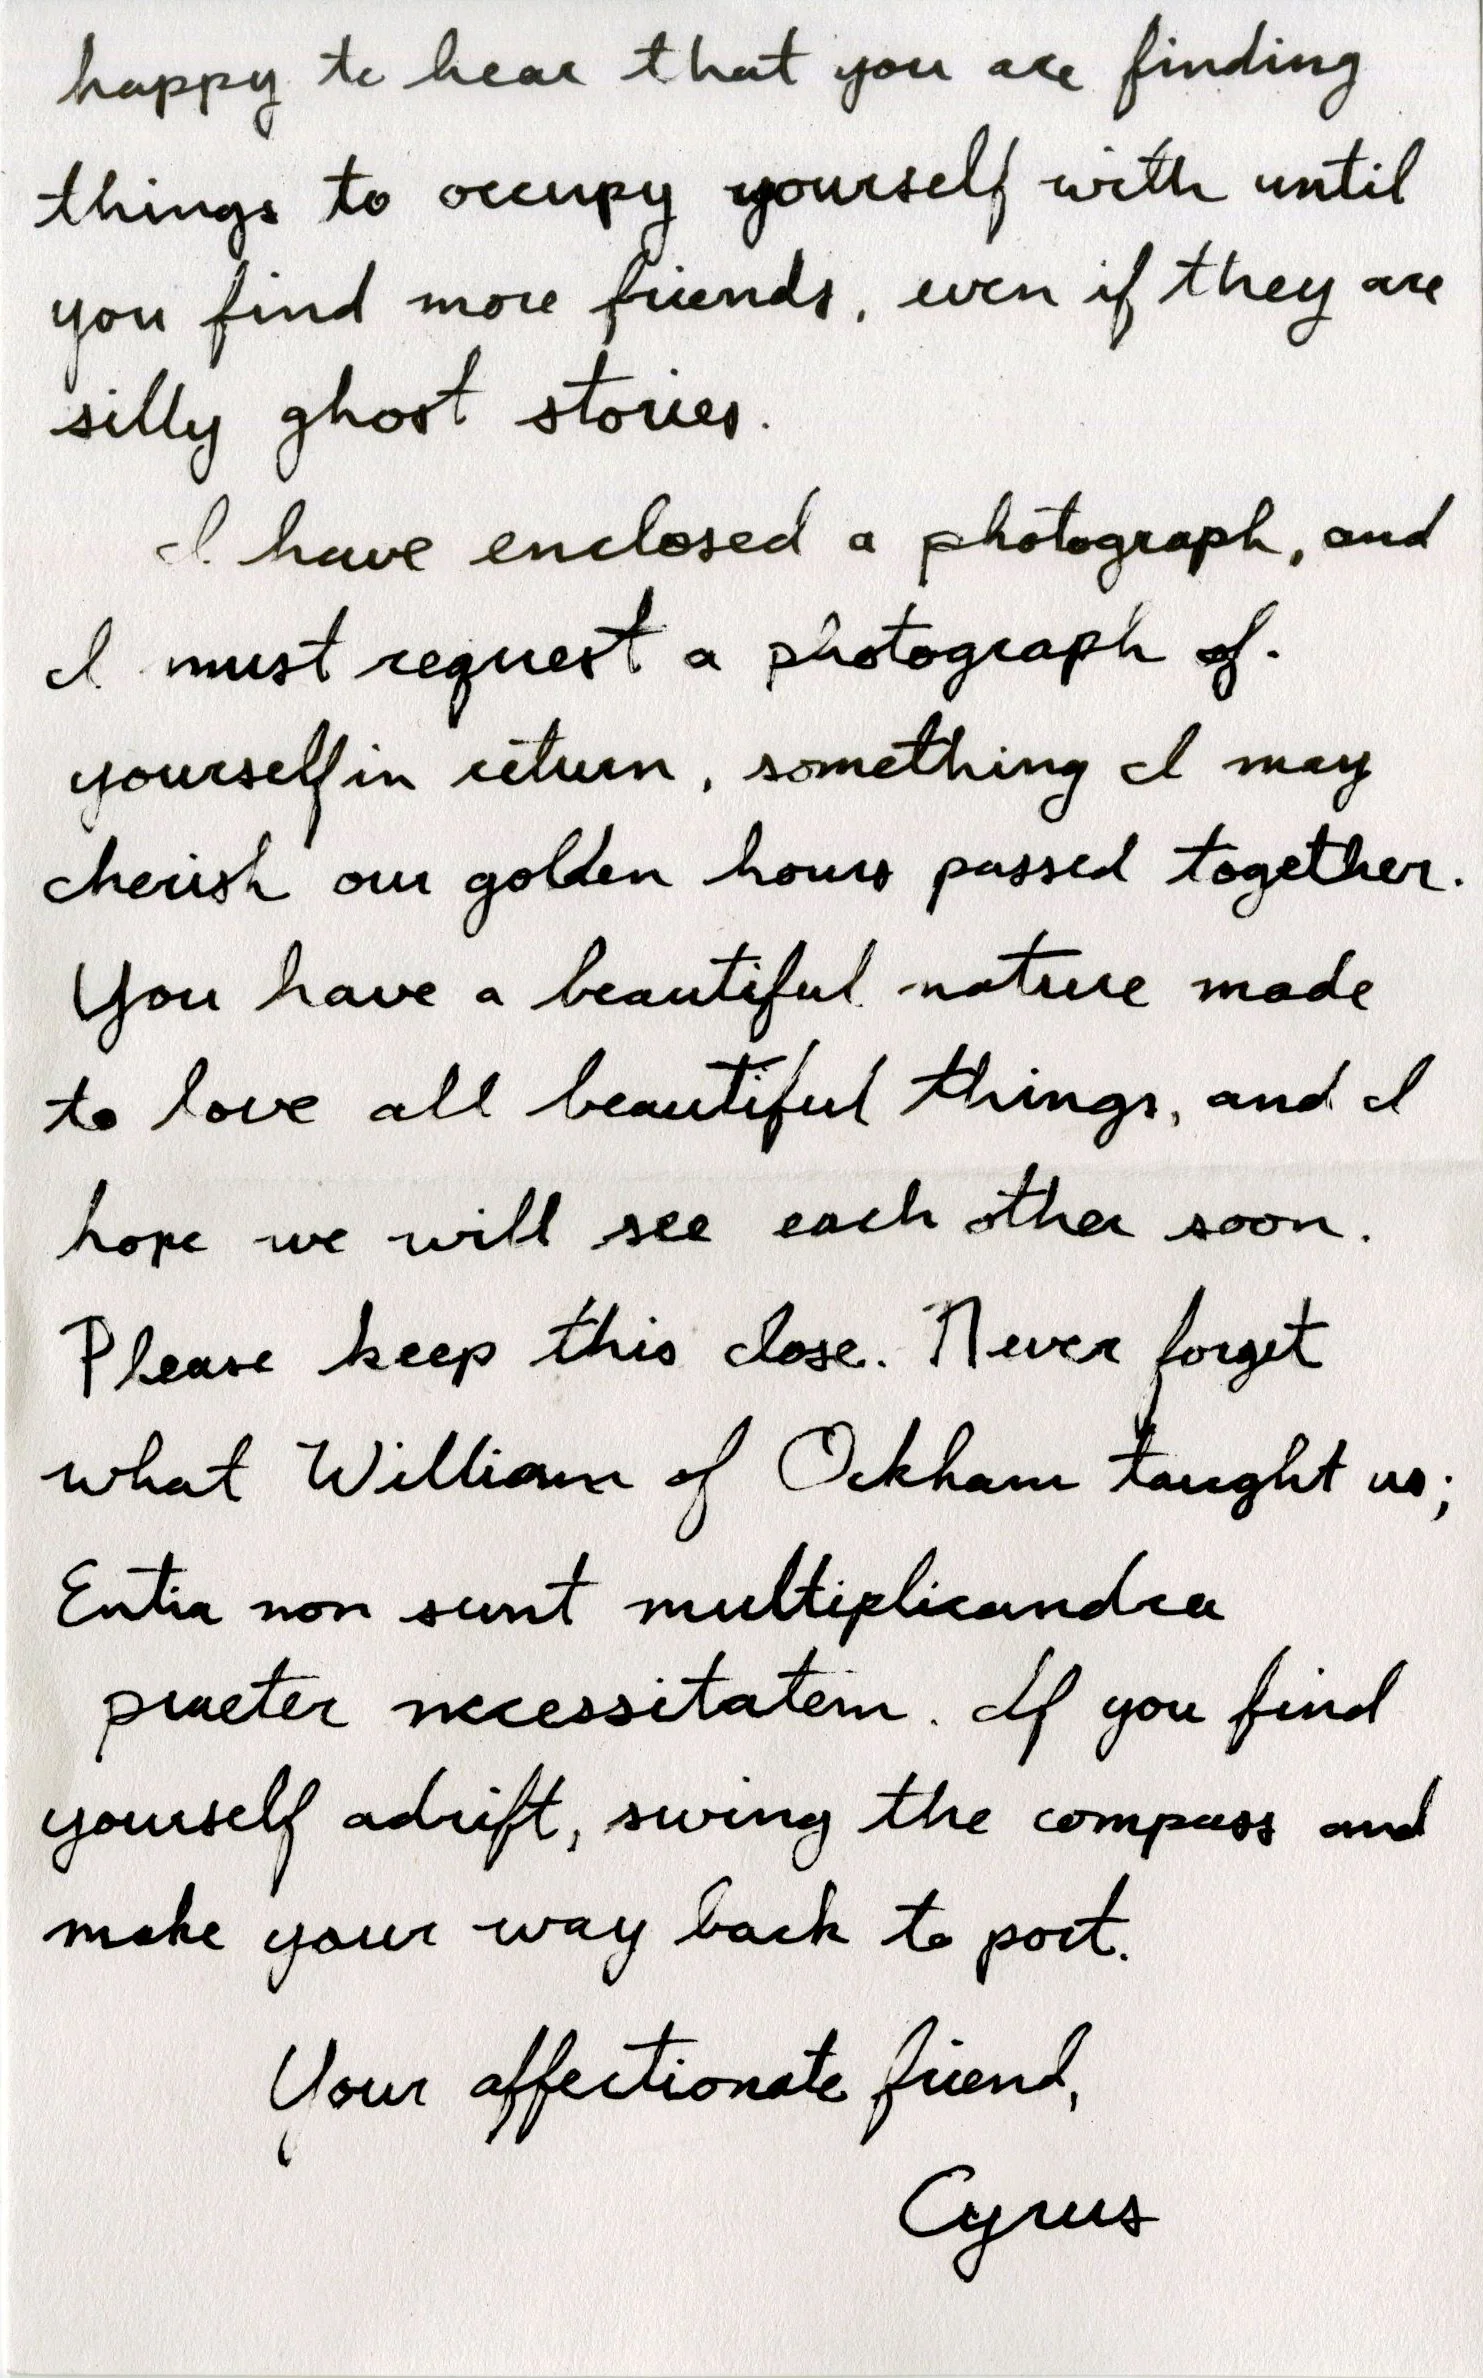 happy to hear that you are finding
things to occupy yourself with until
you find more friends, even if they are
silly ghost stories.
I have enclosed a photograph, and
I must request a photograph of
yourself in return, something I may
cherish our golden hours passed together.
You have a beautiful nature made
to love all beautiful things, and I
hope we will see each other soon.
Please keep this close. Never forget
what William of Ockham taught us;
Entia non sunt multiplicandra
praeter necessitatem. If you find
yourself adrift, swing the compass and
make your way back to port.
Your affectionate friend,
Cyrus